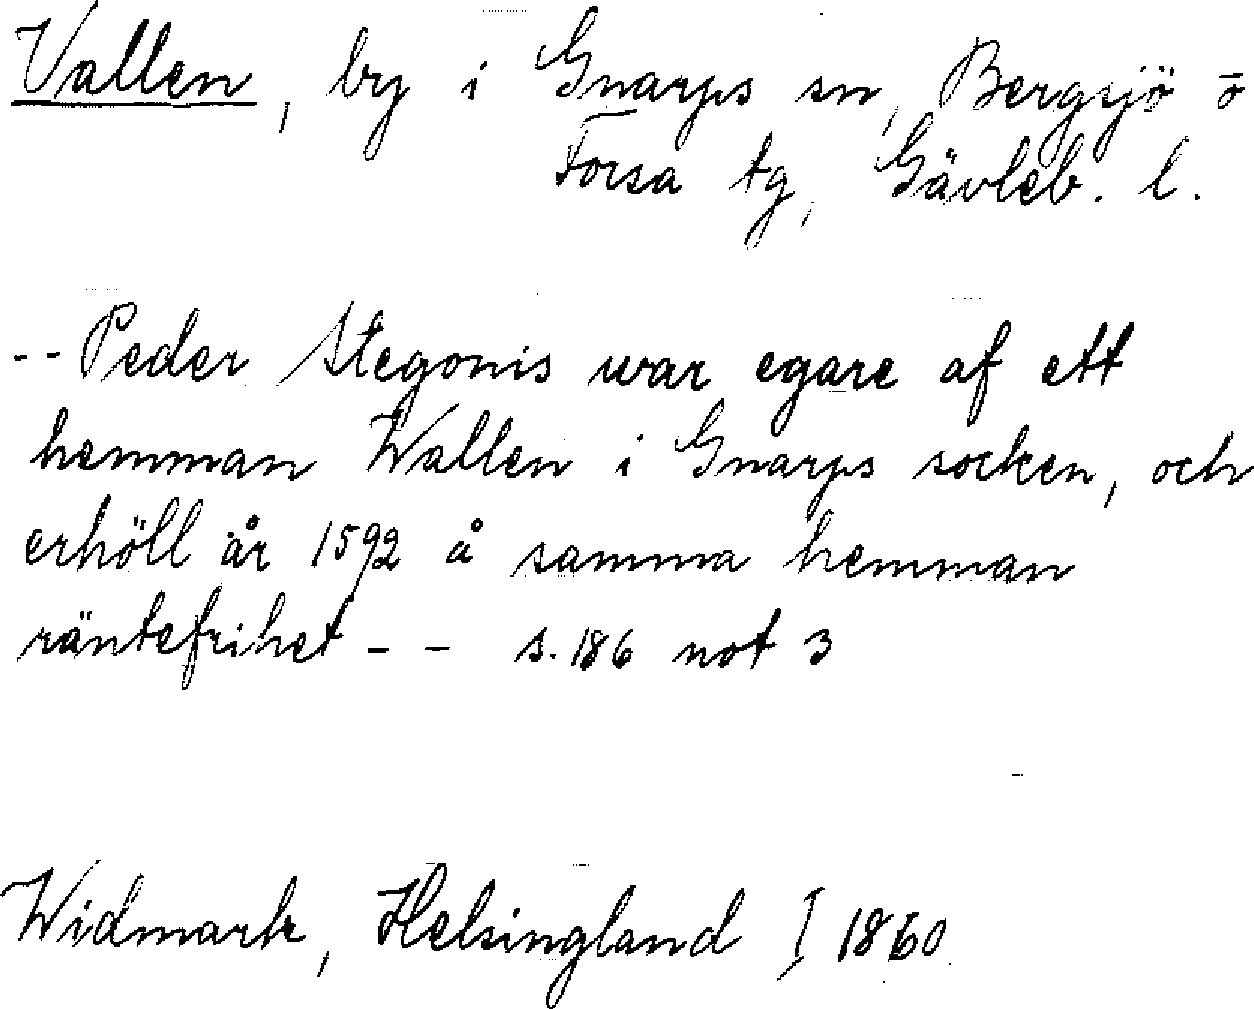 Vallen, by i Gnarps sn, Bergsjö o
Forsa tg, Gävleb. l.
-- Peder Stegonis war egare af ett
hemman Wallen i Gnarps socken, och
erhöll år 1592 å samma hemman
räntefrihet - - s. 186 not 3
Widmark, Helsingland I 1860